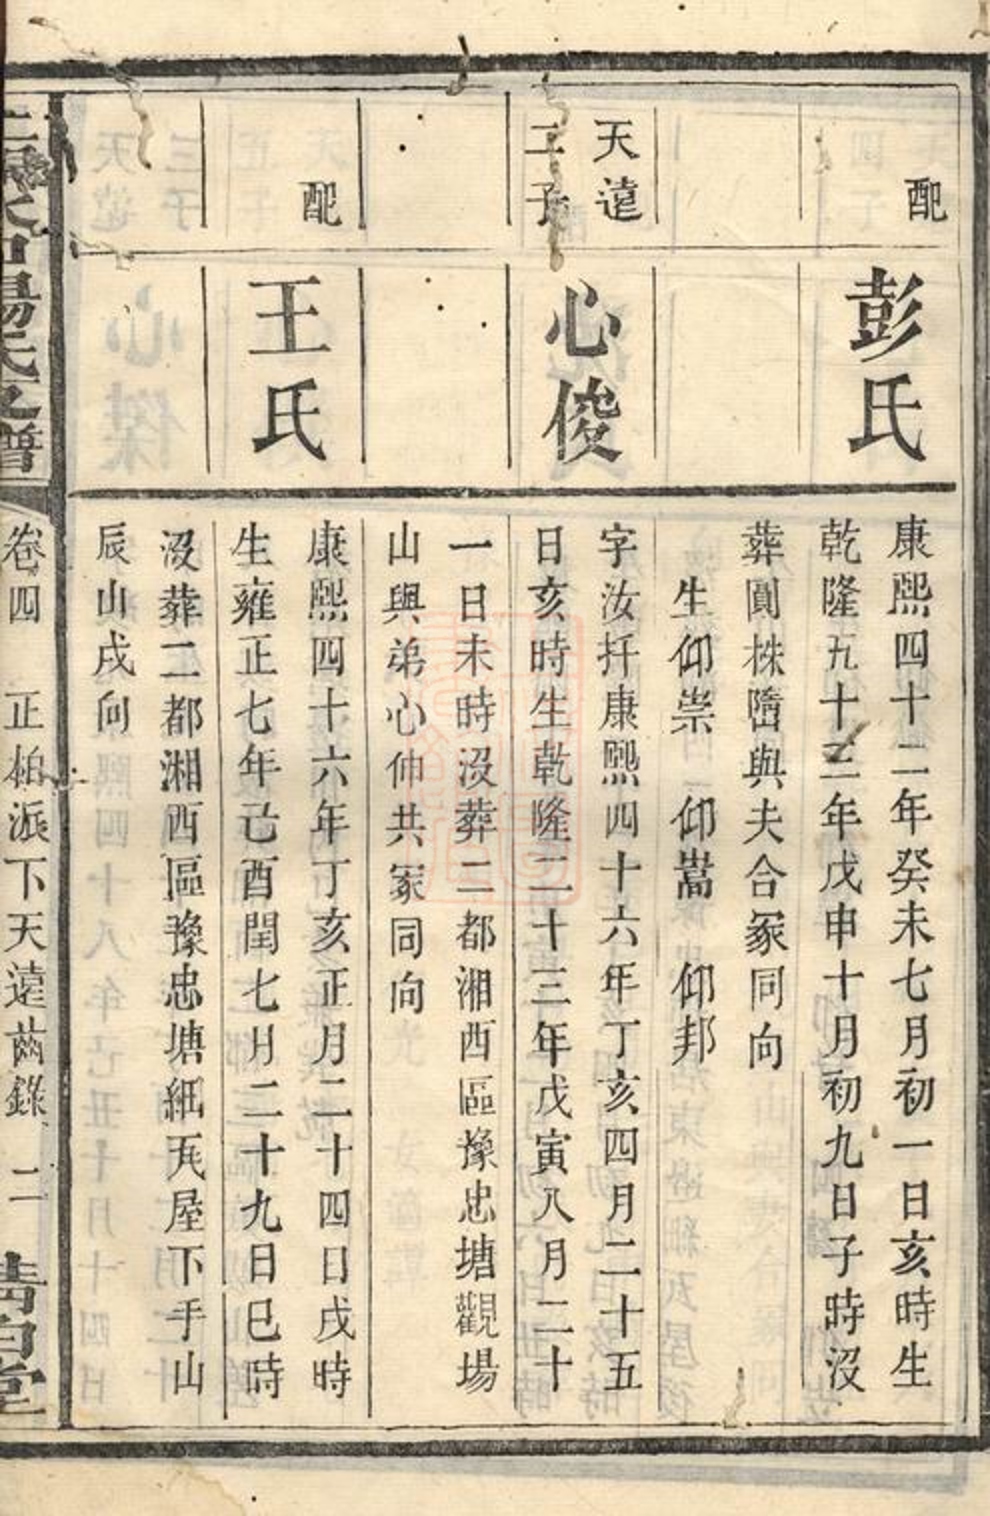 配
彭氏
康熙四十二年癸未七月初一日亥時生
乾隆五十三年戊申十月初九日子時沒
葬圓株墮與夫合冢同向
生仰崇 仰嵩 仰邦
天遠
二子
心俊
字汝扦康熙四十六年丁亥四月二十五
日亥時生乾隆二十三年戊寅八月二十
一日未時沒葬二都湘西區豫忠塘觀場
山與弟心仲共冢同向
配
王氏
康熙四十六年丁亥正月二十四日戌時
生雍正七年己酉閏七月二十九日巳時
沒葬二都湘西區豫忠塘細瓦屋下手山
辰山戌向
湯氏支譜
卷四 正柏派下天遠齒錄 二
清白堂